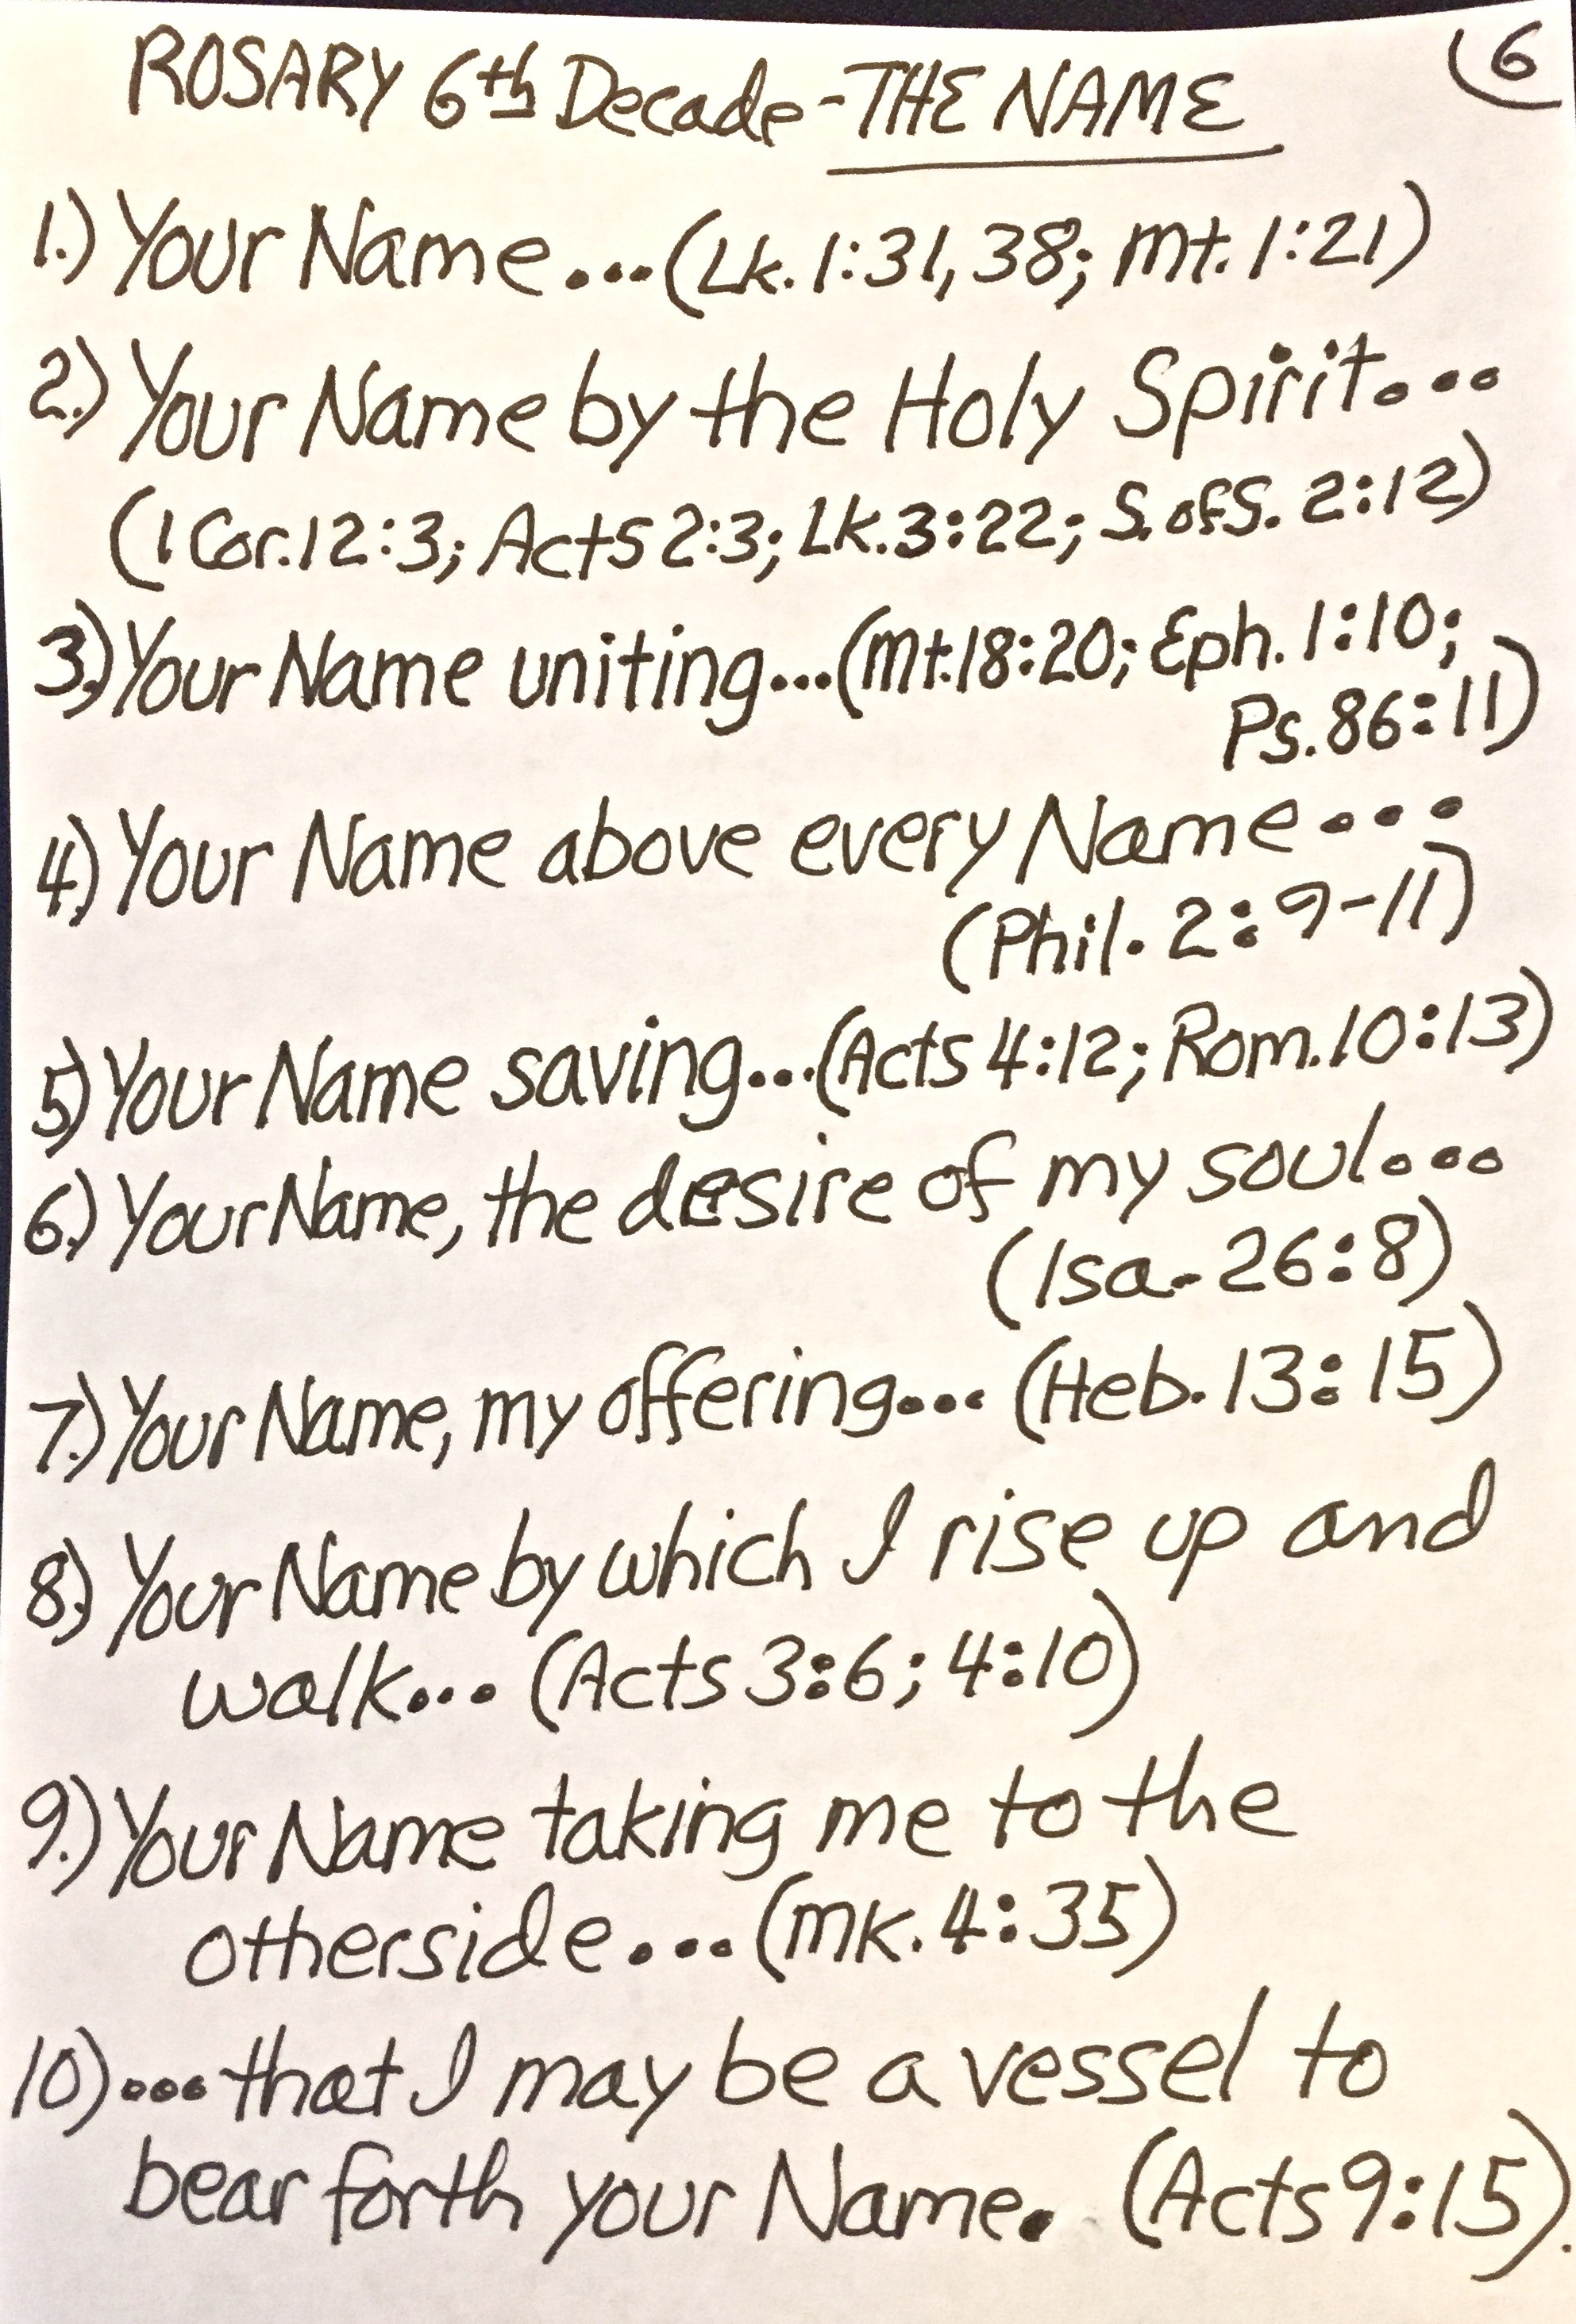 ROSARY 6th Decade - THE NAME
6
1.) Your Name... (Lk. 1:31, 38; Mt. 1:21)
2.) Your Name by the Holy Spirit...
(1 Cor. 12:3; Acts 2:3; Lk. 3:22; S. of S. 2:12)
3.) Your Name uniting... (Mt. 18:20; Eph. 1:10;
Ps. 86:11)
4.) Your Name above every Name...
(Phil. 2:9-11)
5.) Your Name saving... (Acts 4:12; Rom. 10:13)
6.) Your Name, the desire of my soul...
(Isa. 26:8)
7.) Your Name, my offering... (Heb. 13:15)
8.) Your Name by which I rise up and
walk... (Acts 3:6; 4:10)
9.) Your Name taking me to the
otherside... (Mk. 4:35)
10) ...that I may be a vessel to
bear forth your Name. (Acts 9:15).